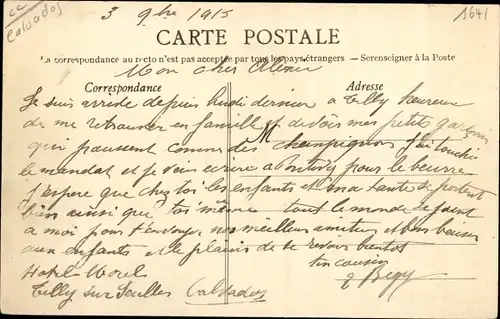 Calvados
3 9bre 1915
1641
CARTE POSTALE
La correspondance au recto n'est pas acceptée par tous les pays étrangers - Se renseigner à la Poste
Mon cher
Correspondance
Adresse
Je suis arrivée depuis lundi dernier a Tilly heureuse
de me retrouver en famille et de voir mes petits garçons
qui poussent comme des champignons j'ai touché
le mandat et je vais ecrire a Pontivy pour le beurre
J'espere que chez toi les enfants et ma tante se portent
bien ainsi que toi même tout le monde se joint
a moi pour t'envoyer nos meilleurs amities et bons baisers
aux enfants et le plaisir de te revoir bientot
ton cousin
Hotel
Tilly sur Seulles Calvados